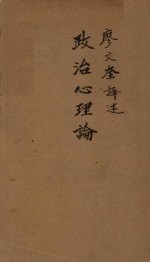 廖文奎譯述
政治心理論